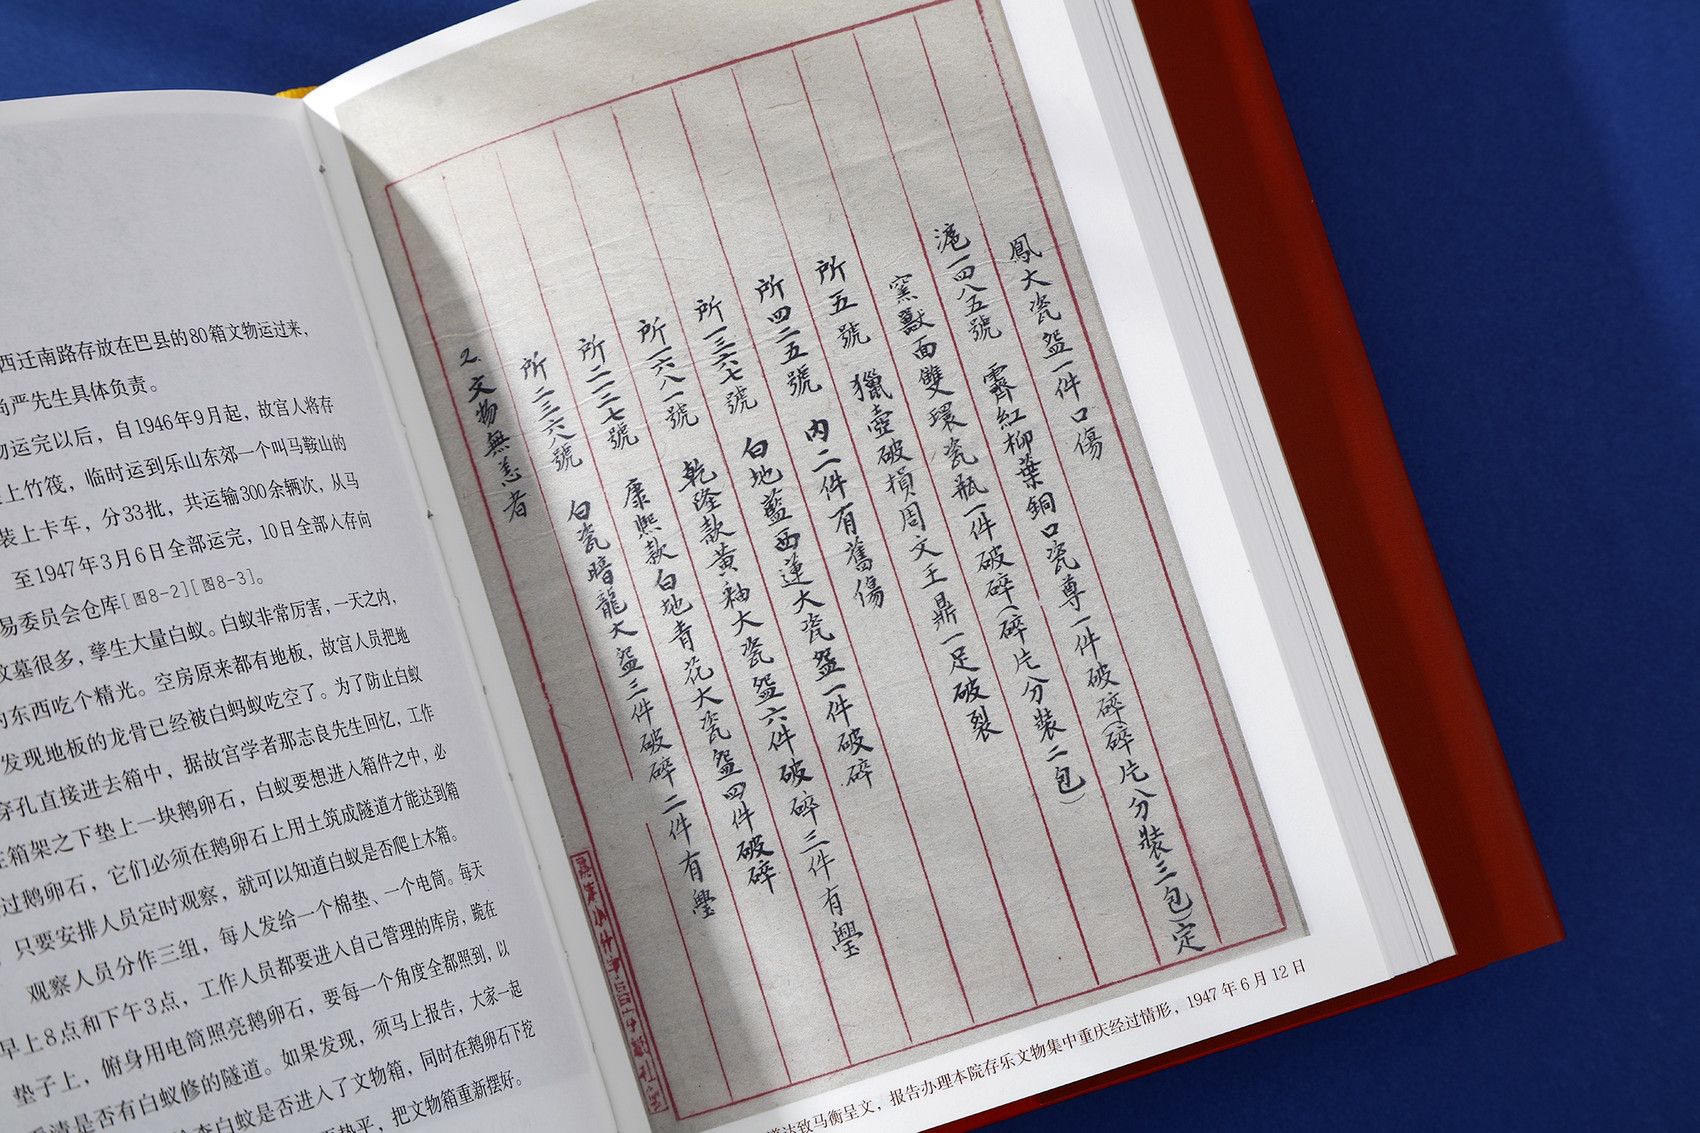 西迁南路存放在巴县的80箱文物运过来,
尚严先生具体负责。
物运完以后，自1946年9月起，故宫人将存
上竹筏，临时运到乐山东郊一个叫马鞍山的
装上卡车，分33批，共运输300余辆次，从马
至1947年3月6日全部运完，10日全部入存向
易委员会仓库[图8-2][图8-3]。
坟墓很多，孳生大量白蚁。白蚁非常厉害，一天之内，
的东西吃个精光。空房原来都有地板，故宫人员把地
发现地板的龙骨已经被白蚂蚁吃空了。为了防止白蚁
穿孔直接进去箱中，据故宫学者那志良先生回忆，工作
在箱架之下垫上一块鹅卵石，白蚁要想进入箱件之中，必
过鹅卵石，它们必须在鹅卵石上用土筑成隧道才能达到箱
只要安排人员定时观察，就可以知道白蚁是否爬上木箱。
观察人员分作三组，每人发给一个棉垫、一个电筒。每天
早上8点和下午3点，工作人员都要进入自己管理的库房，跪在
垫子上，俯身用电筒照亮鹅卵石，要每一个角度全都照到，以
看清是否有白蚁修的隧道。如果发现，须马上报告，大家一起
检查白蚁是否进入了文物箱，同时在鹅卵石下挖
垫平，把文物箱重新摆好。
鳳大瓷盌一件口傷
滬一四八五號 霽紅柳葉銅口瓷尊一件破碎(碎片分裝三包)定
窯獸面雙環瓷瓶一件破碎(碎片分裝二包)
所五號 獵壺破損周文王鼎一足破裂
所四二五號 內二件有舊傷
所一三六七號 白地藍西蓮大瓷盌一件破碎
所一六八一號 乾隆款黃釉大瓷盌六件破碎三件有璺
所二二二七號 康熙款白地青花大瓷盌四件破碎
所二三六八號 白瓷暗龍大盌三件破碎二件有璺
2.文物無恙者
达致马衡呈文，报告办理本院存乐文物集中重庆经过情形，1947年6月12日